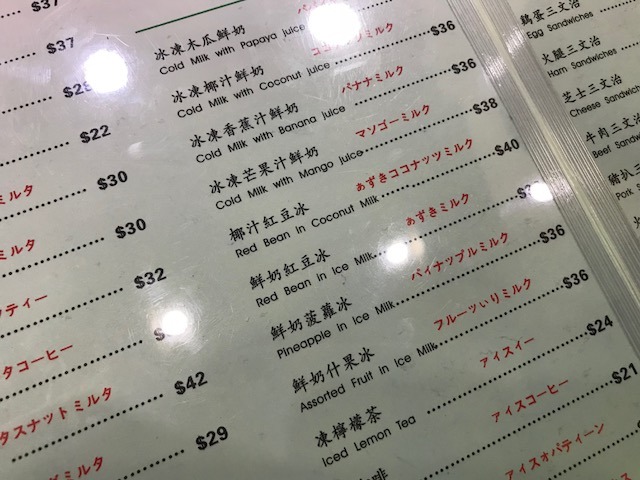 $37
$37
$22
ミルタ
$30
ミルタ
$30
ティー
$32
タコーヒー
$42
タスナットミルタ
$29
ミルタ
冰凍木瓜鮮奶
Cold Milk with Papaya juice
冰凍椰汁鮮奶
Cold Milk with Coconut juice
$36
冰凍香蕉汁鮮奶
バナナミルク
Cold Milk with Banana juice
$36
冰凍芒果汁鮮奶
マソゴーミルク
Cold Milk with Mango juice
$38
椰汁紅豆冰
あずきココナッツミルク
Red Bean in Coconut Milk
$40
鮮奶紅豆冰
あずきミルク
Red Bean in Ice Milk
鮮奶菠蘿冰
パイナップルミルク
Pineapple in Ice Milk
$36
鮮奶什果冰
フルーツいりミルク
Assorted Fruit in Ice Milk
$36
凍檸檬茶
アイスイー
Iced Lemon Tea
$24
アイスコーヒー
$21
アイスオバティーン
鷄蛋三文治
Egg Sandwiches
火腿三文治
Ham Sandwiches
芝士三文治
Cheese Sandwiches
牛肉三文治
Beef
豬扒三
Pork